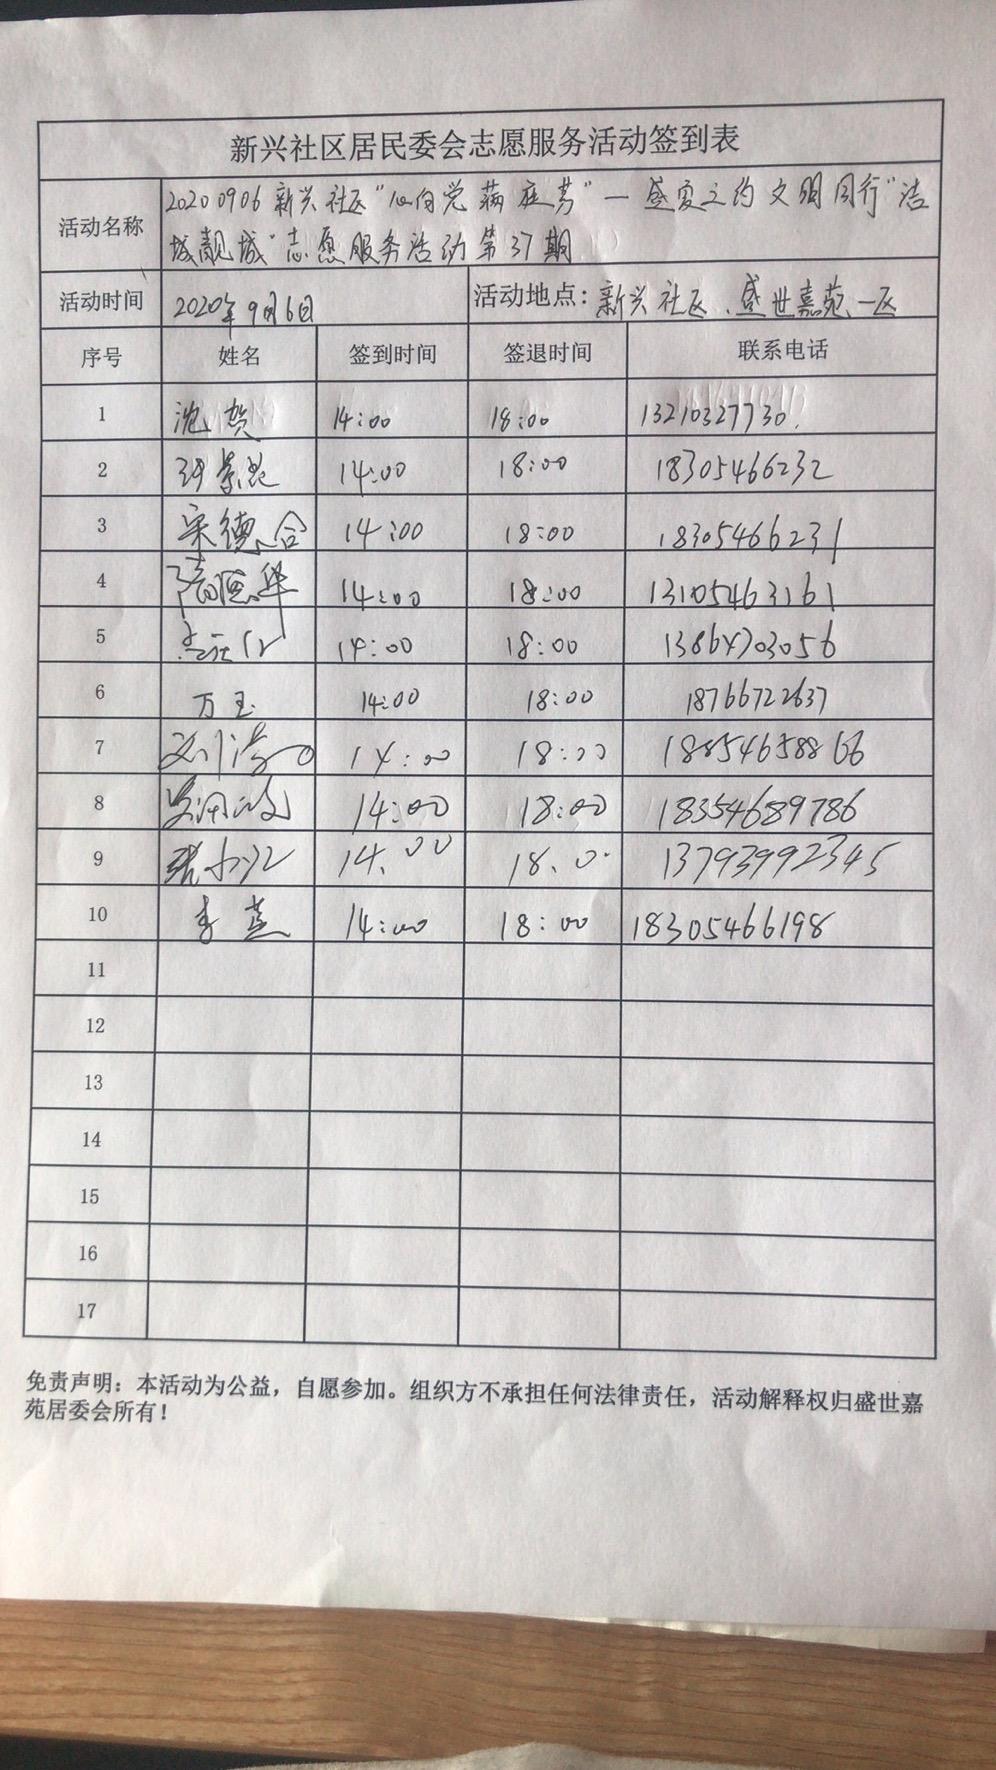 新兴社区居民委会志愿服务活动签到表
活动名称 20200906新兴社区“心向党 满庭芳”—盛夏之约 文明同行“洁
城靓城”志愿服务活动第37期
活动时间 2020年9月6日 活动地点: 新兴社区、盛世嘉苑一区
序号 姓名 签到时间 签退时间 联系电话
1 沈贺 14:00 18:00 13210327730
2 14:00 18:00 18305466232
3 宋德合 14:00 18:00 18305466231
4 隋德华 14:00 18:00 13105463161
5 14:00 18:00 13864703056
6 万玉 14:00 18:00 18766722637
7 刘涛 14:00 18:00 18854658866
8 14:00 18:00 18354689786
9 14.00 18.0 13793992345
10 李燕 14:00 18:00 18305466198
11
12
13
14
15
16
17
免责声明：本活动为公益，自愿参加。组织方不承担任何法律责任，活动解释权归盛世嘉
苑居委会所有！